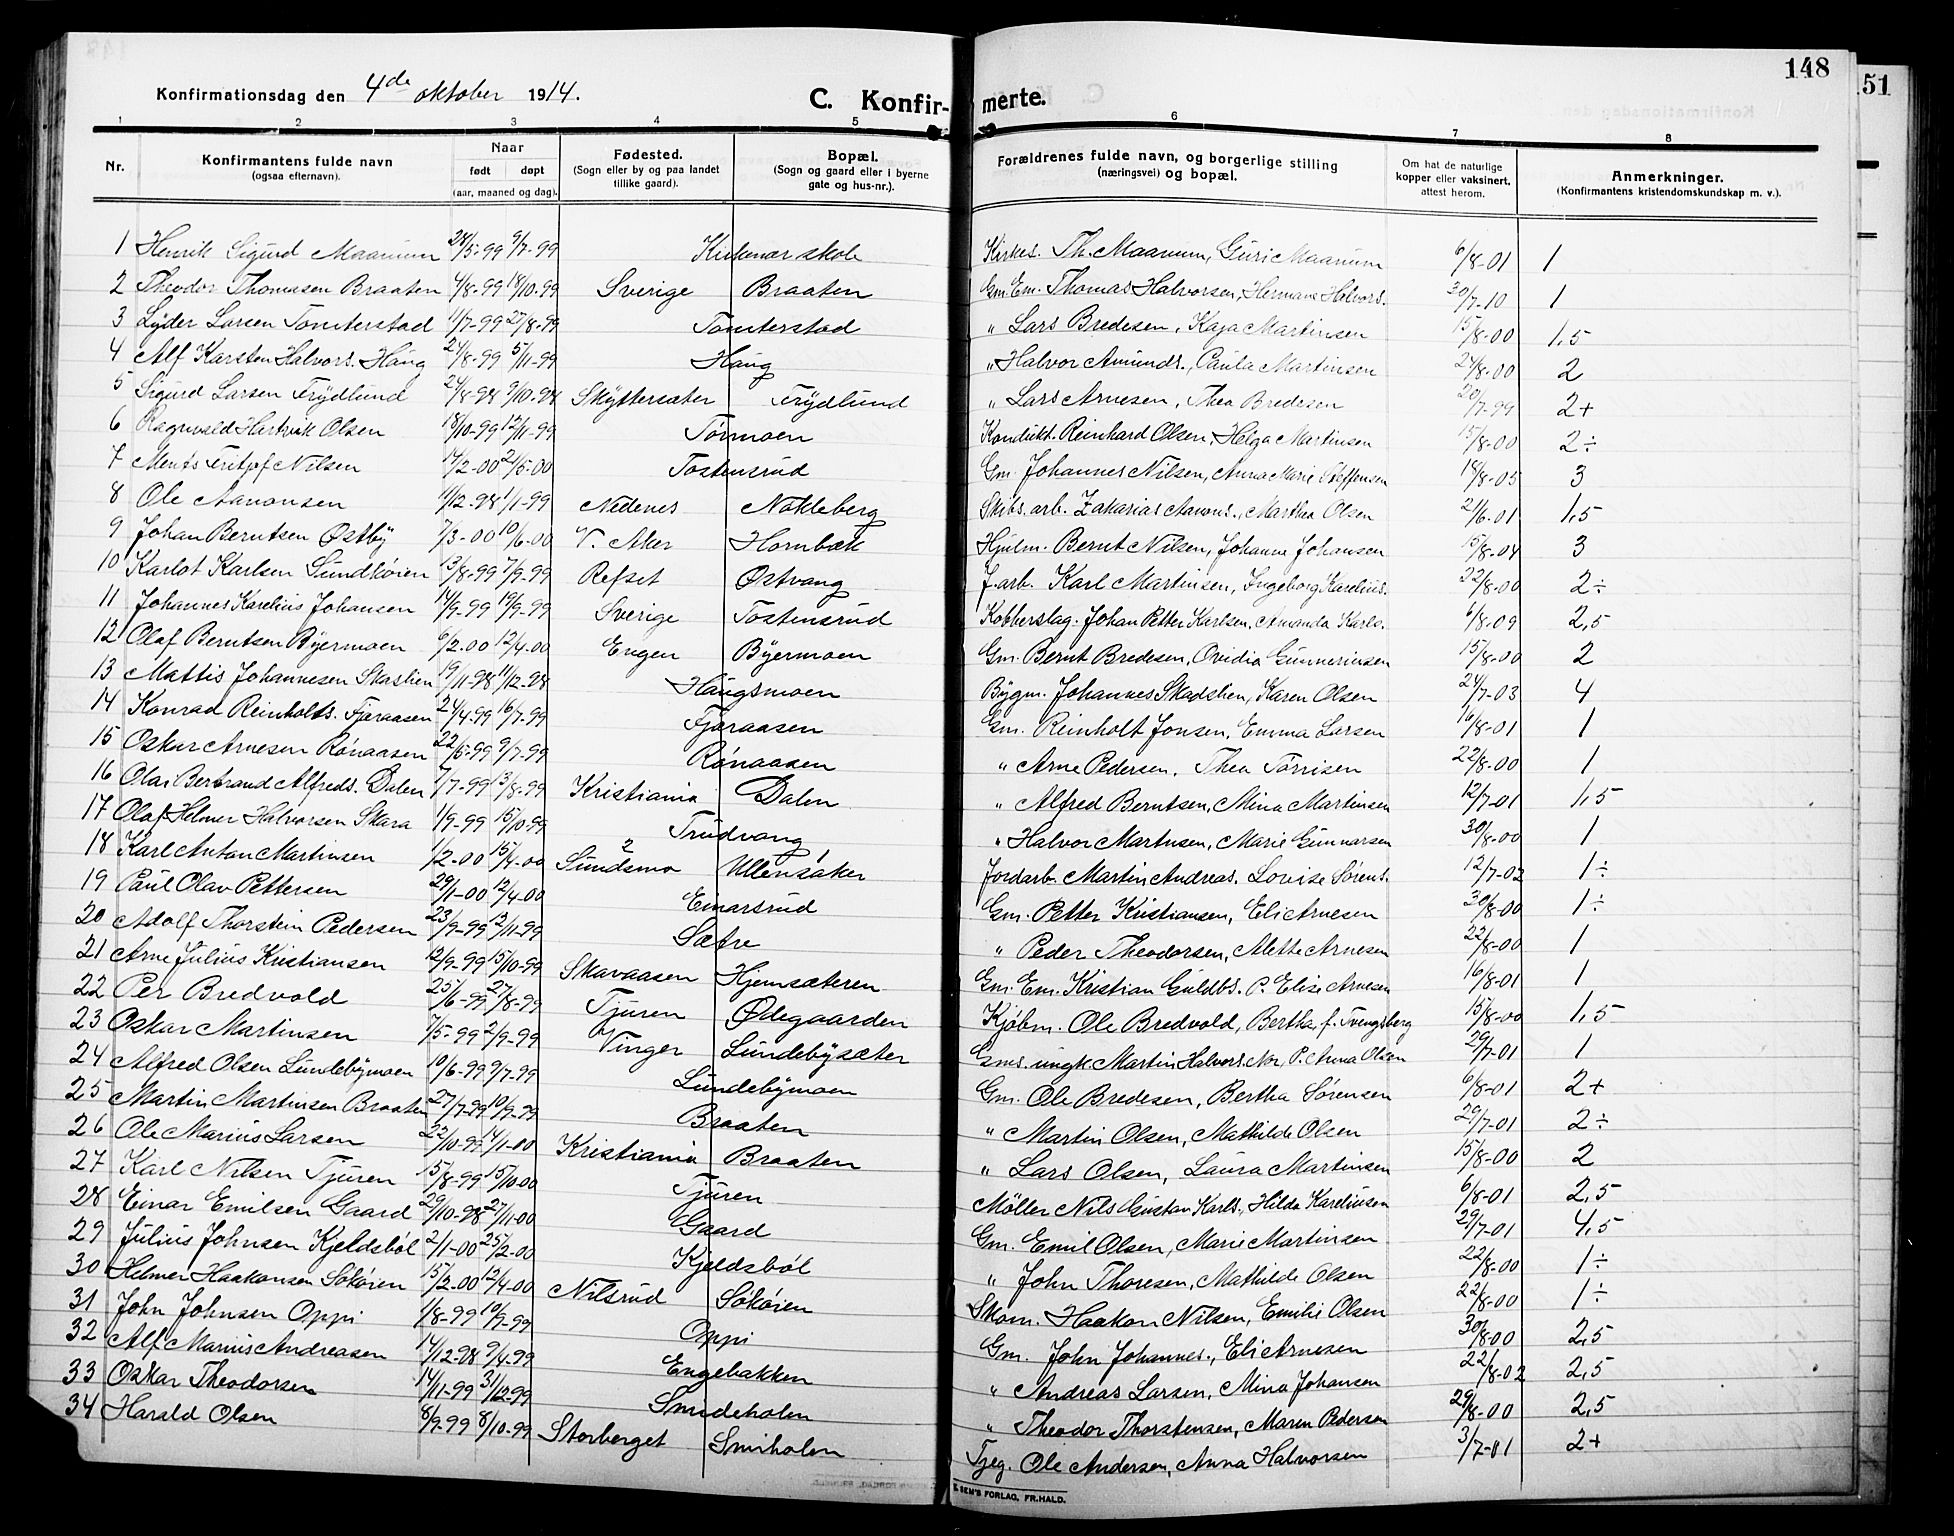 148
51
Konfirmationsdag den 4de oktober 1914.
C. Konfir- merte.
1 2 3 4 5 6 7 8
Nr.
Konfirmantens fulde navn
(ogsaa efternavn).
Naar
født døpt
(aar, maaned og dag).
Fødested.
(Sogn eller by og paa landet
tillike gaard).
Bopæl.
(Sogn og gaard eller i byerne
gate og hus-nr.).
Forældrenes fulde navn, og borgerlige stilling
(næringsvei) og bopæl.
Om hat de naturlige
kopper eller vaksinert,
attest herom.
Anmerkninger.
(Konfirmantens kristendomskundskap m. v.).
1 Henrik Sigurd Maarum 24/5-99 9/7-99 Kirkenær skole Kirkes. Th. Maarum, Guri Maarum 6/8-01 1
2 Theodor Thomasen Braaten 4/8-99 18/10-99 Sverige Braaten Gm. Em. Thomas Halvorsen, Hermane Halvors. 30/7-10 1
3 Lyder Larsen Tomterstad 11/7-99 27/8-99 Tomterstad " Lars Bredesen, Kaja Martinsen 15/8-00 1,5
4 Alf Karsten Halvors. Haug 24/8-99 5/11-99 Haug " Halvor Amunds., Paula Martinsen 24/8-00 2
5 Sigurd Larsen Frydlund 24/8-98 9/10-98 Skyttersæter Frydlund " Lars Arnesen, Thea Bredesen 20/7-99 2+
6 Ragnvald Hartvik Olsen 18/10-99 12/11-99 Tørmoen Kondukt. Reinhard Olsen, Helga Martinsen 15/8-00 2÷
7 Ments Fritjof Nilsen 17/2-00 2/5-00 Tostensrud Gm. Johannes Nilsen, Anna Marie Steffensen 18/8-05 3
8 Ole Aanonsen 11/12-98 1/1-99 Nedenes Nokleberg Skibs.arb. Zakarias Aanons., Marthea Olsen 21/6-01 1,5
9 Johan Berntsen Østby 7/3-00 10/6-00 V. Aker Hornbæk Hjulm. Bernt Nilsen, Johanne Johansen 15/8-04 3
10 Karlot Karlsen Sundkøien 13/8-99 7/9-99 Refset Østvang J.arb. Karl Martinsen, Ingeborg Karelius. 22/8-00 2÷
11 Johannes Karelius Johansen 14/9-99 19/9-99 Sverige Tostensrud Kobberslag. Johan Petter Karlsen, Amanda Karls. 6/8-09 2,5
12 Olaf Berntsen Byermoen 9/2-00 12/4-00 Engen Byermoen Gm. Bernt Bredesen, Ovidia Gunneriusen 15/8-00 2
13 Mattis Johannesen Skaslien 19/11-98 11/12-98 Haugsmoen Bygm. Johannes Skadslien, Karen Olsen 24/7-03 4
14 Konrad Reinholts. Fjæraasen 24/4-99 16/7-99 Fjæraasen Gm. Reinholt Jonsen, Emma Larsen 16/8-01 1
15 Oskar Arnesen Rønaasen 22/5-99 9/7-99 Rønaasen " Arne Pedersen, Thea Tørrisen 22/8-00 1
16 Olai Bertrand Alfreds. Dalen 7/7-99 13/8-99 Kristiania Dalen " Alfred Berntsen, Mina Martinsen 12/7-01 1,5
17 Olaf Helmer Halvorsen Skara 1/9-99 15/10-99 Trudvang " Halvor Martnsen, Marie Gunnarsen 30/8-00 1
18 Karl Anton Martinsen 1/2-00 15/4-00 Sundsmo Ullensaker Jordarb. Martin Andreas. Lovise Sørens. 12/7-02 1÷
19 Paul Olav Pettersen 29/1-00 12/4-00 Einarsrud Gm. Petter Kristiansen, Eli Arnesen 30/8-00 1÷
20 Adolf Thorstein Pedersen 23/9-99 12/11-99 Sætre " Peder Theodorsen, Alette Arnesen 22/8-00 1
21 Arne Julius Kristiansen 12/9-99 15/10-99 Skavaasen Hjemsæteren Gm. Em. Kristian Guldbs. P. Elise Arnesen 16/8-01 1
22 Per Bredvold 25/6-99 27/8-99 Tjuren Ødegaarden Kjøbm. Ole Bredvold, Bertha, f. Tvengsberg 15/8-00 1,5
23 Oskar Martinsen 7/5-99 2/9-99 Vinger Lundebysæter Gms. ungk. Martin Halvors. Nor, P. Anna Olsen 29/7-01 1
24 Alfred Olsen Lundebymoen 10/6-99 9/7-99 Lundebymoen Gm. Ole Bredesen, Bertha Sørensen 6/8-01 2+
25 Martin Martinsen Braaten 27/7-99 10/9-99 Braaten " Martin Olsen, Mathilde Olsen 29/7-01 2÷
26 Ole Marius Larsen 22/10-99 14/1-00 Kristiania Braaten " Lars Olsen, Laura Martinsen 15/8-00 2
27 Karl Nilsen Tjuren 15/8-99 15/10-00 Tjuren Møller Nils Gustav Karls., Hilda Kareliusen 6/8-01 2,5
28 Einar Emilsen Gaard 29/10-98 27/11-00 Gaard Gm. Emil Olsen, Marie Martinsen 29/7-01 4,5
29 Julius Johnsen Kjeldsbøl 2/1-00 25/2-00 Kjeldsbøl " John Thoresen, Mathilde Olsen 22/8-00 1÷
30 Helmer Haakonsen Søkøien 15/2-00 12/4-00 Nilsrud Søkøien Skom. Haakon Nilsen, Emilie Olsen 22/8-00 1÷
31 John Johnsen Oppi 1/8-99 10/9-99 Oppi Gm. John Johannes., Eli Arnesen 30/8-00 2,5
32 Alf Marius Andreasen 14/12-98 9/4-99 Engebakken " Andreas Larsen, Mina Johansen 22/8-02 2,5
33 Oskar Theodorsen 14/11-99 31/12-99 Smideholen " Theodor Thorstensen, Maren Pedersen 29/8-00 2,5
34 Harald Olsen 8/9-99 8/10-99 Storberget Smiholen Tjeg. Ole Andersen, Anna Halvorsen 3/7-01 2+
SEM'S FORLAG, FR.HALD.